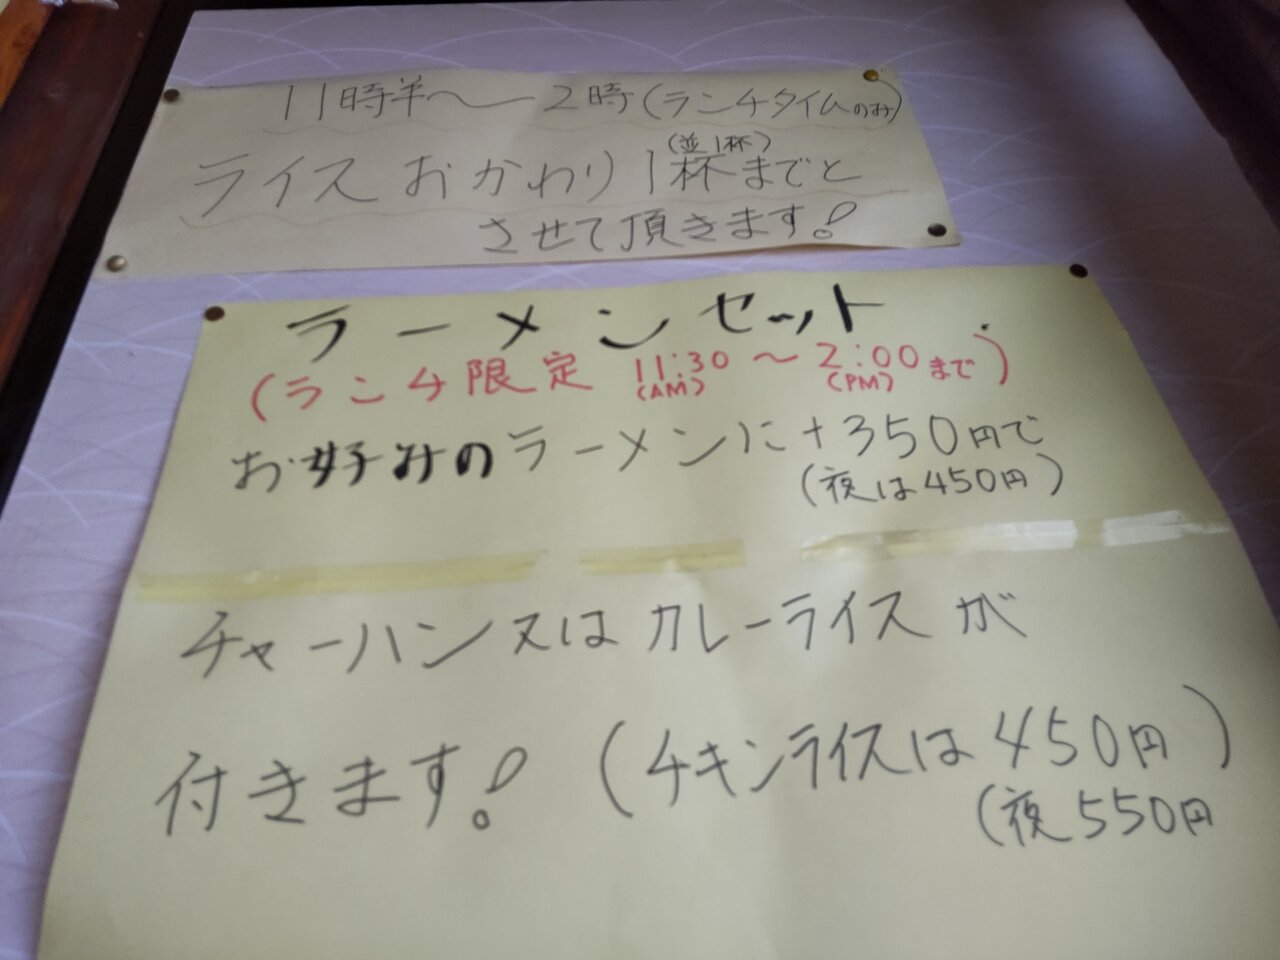 11時半〜2時(ランチタイムのみ)
(並1杯)
ライスおかわり1杯までと
させて頂きます!
ラーメンセット
(ランチ限定 11:30〜2:00まで)
(AM) (PM)
お好みのラーメンに+350円で
(夜は450円)
チャーハン又はカレーライスが
付きます!(チキンライスは450円)
(夜550円